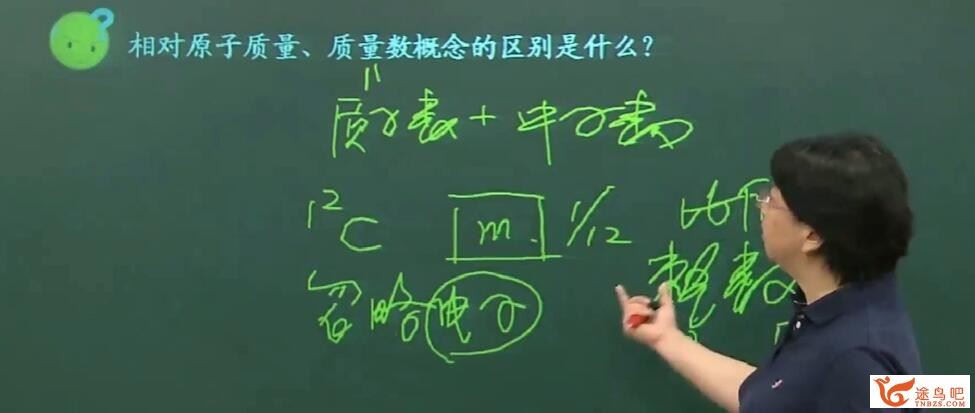 相对原子质量、质量数概念的区别是什么?
质子数+中子数
12C m 1/12
忽略电子 整数
途鸟吧
TNBZS.COM